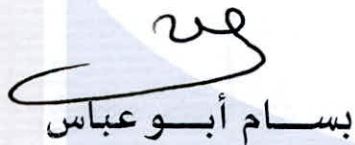 بسام أبو عباس